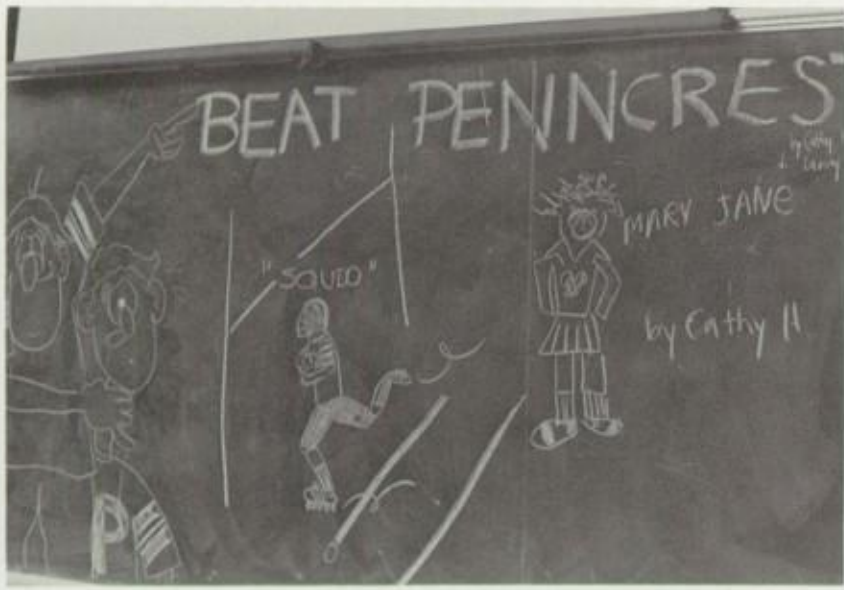 BEAT PENNCREST
by Cathy
"SQUID"
MARY JANE
by Cathy H
P